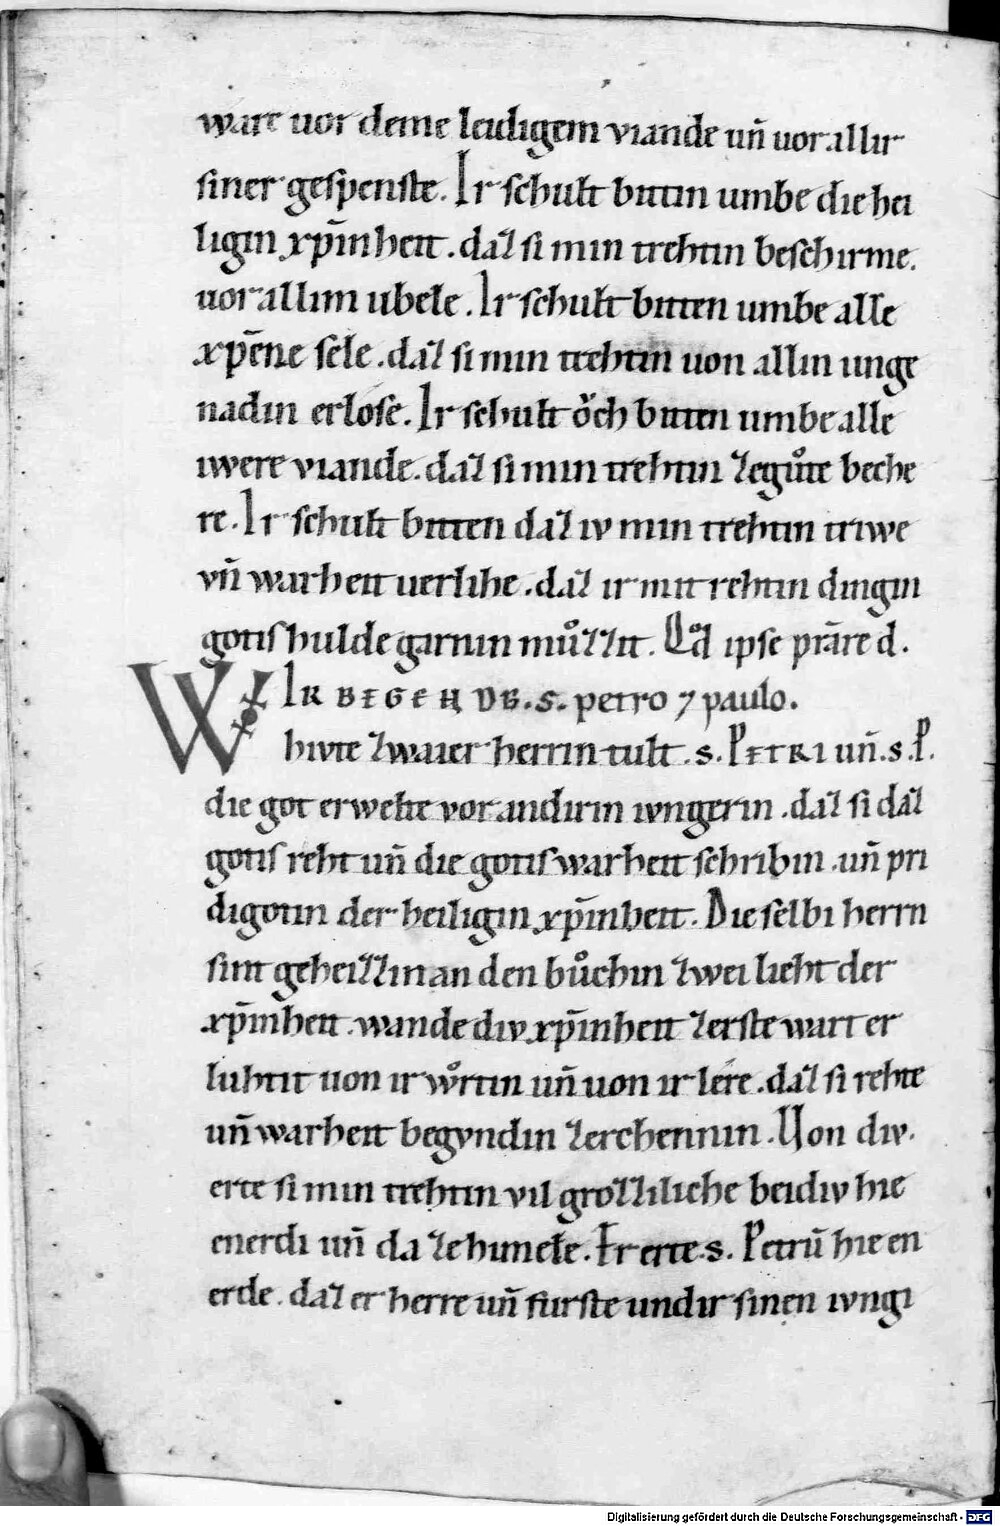 ware uor deme leidigem viande uñ uor allir
siner gespenste. Ir schult bittin umbe die hei
ligin xp̄inheit. daz si min trehtin beschirme.
uor allim ubele. Ir schult bitten umbe alle
xp̄ene sele. daz si min trehtin uon allin unge
nadin erlose. Ir schult oͮch bitten umbe alle
iwere viande. daz si min trehtin zeguͦte beche
re. Ir schult bitten daz iv min trehtin triwe
vñ warheit uerlihe. daz ir mit rehtin dingin
gotis hulde garnin muͦzzit. Qd̊ ipse p̄rare d.
WIR BEGEN HVB. S. petro ⁊ paulo.
hivte zwaier herrin tult. s. PETRI uñ. s. P.
die got erwelte vor andirin ivngerin. daz si daz
gotis reht uñ die gotis warheit schribin. uñ pri
digotin der heiligin xp̄inheit. Die selbi herrn
sint geheizzin an den buͦchin zwei lieht der
xp̄inheit. wande div xp̄inheit zerste wart er
luhtit uon ir woͮrtin uñ uon ir lere. daz si rehte
uñ warheit begvndin zerchennin. Uon div.
erte si min trehtin vil grozziliche beidiv hie
enerdi uñ da ze himele. Er erte. s. Petrū hie en
erde. daz er herre uñ furste undir sinen ivngi
Digitalisierung gefördert durch die Deutsche Forschungsgemeinschaft - DFG